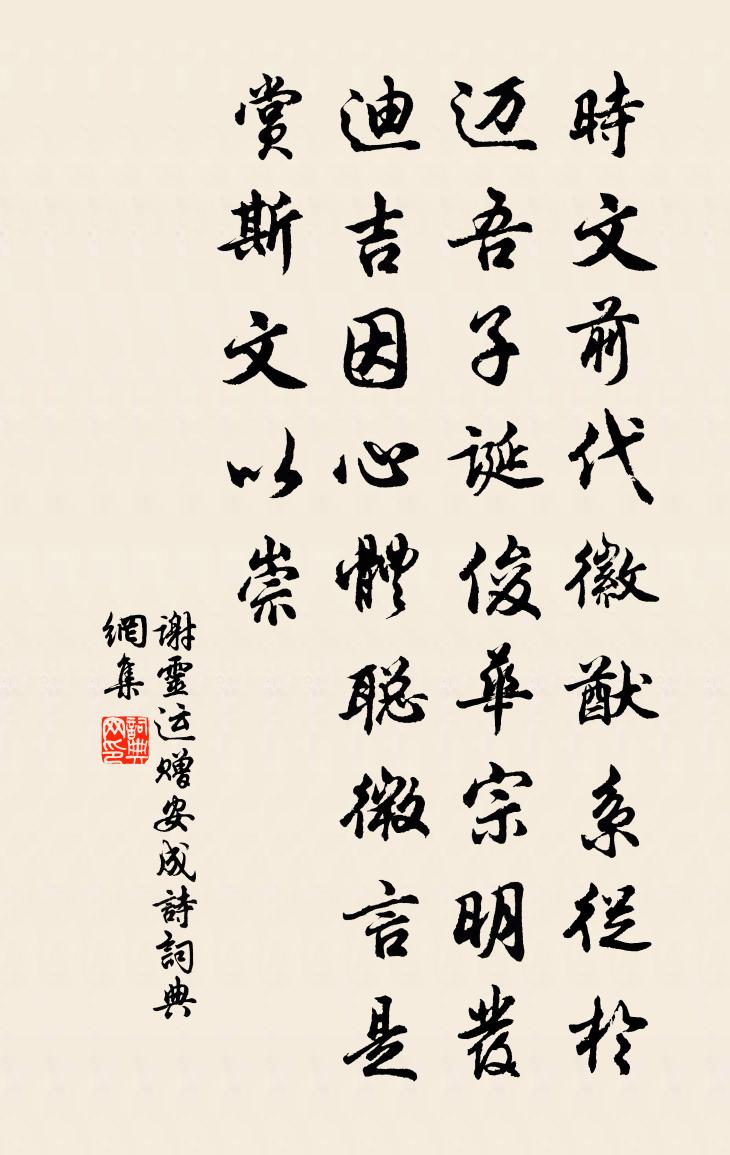 時文前代徽猷系從於
迈吾子誕俊華宗明發
迪吉因心體聪微言是
賞斯文以崇
谢靈运赠安成詩詞典
網集
詞典網印